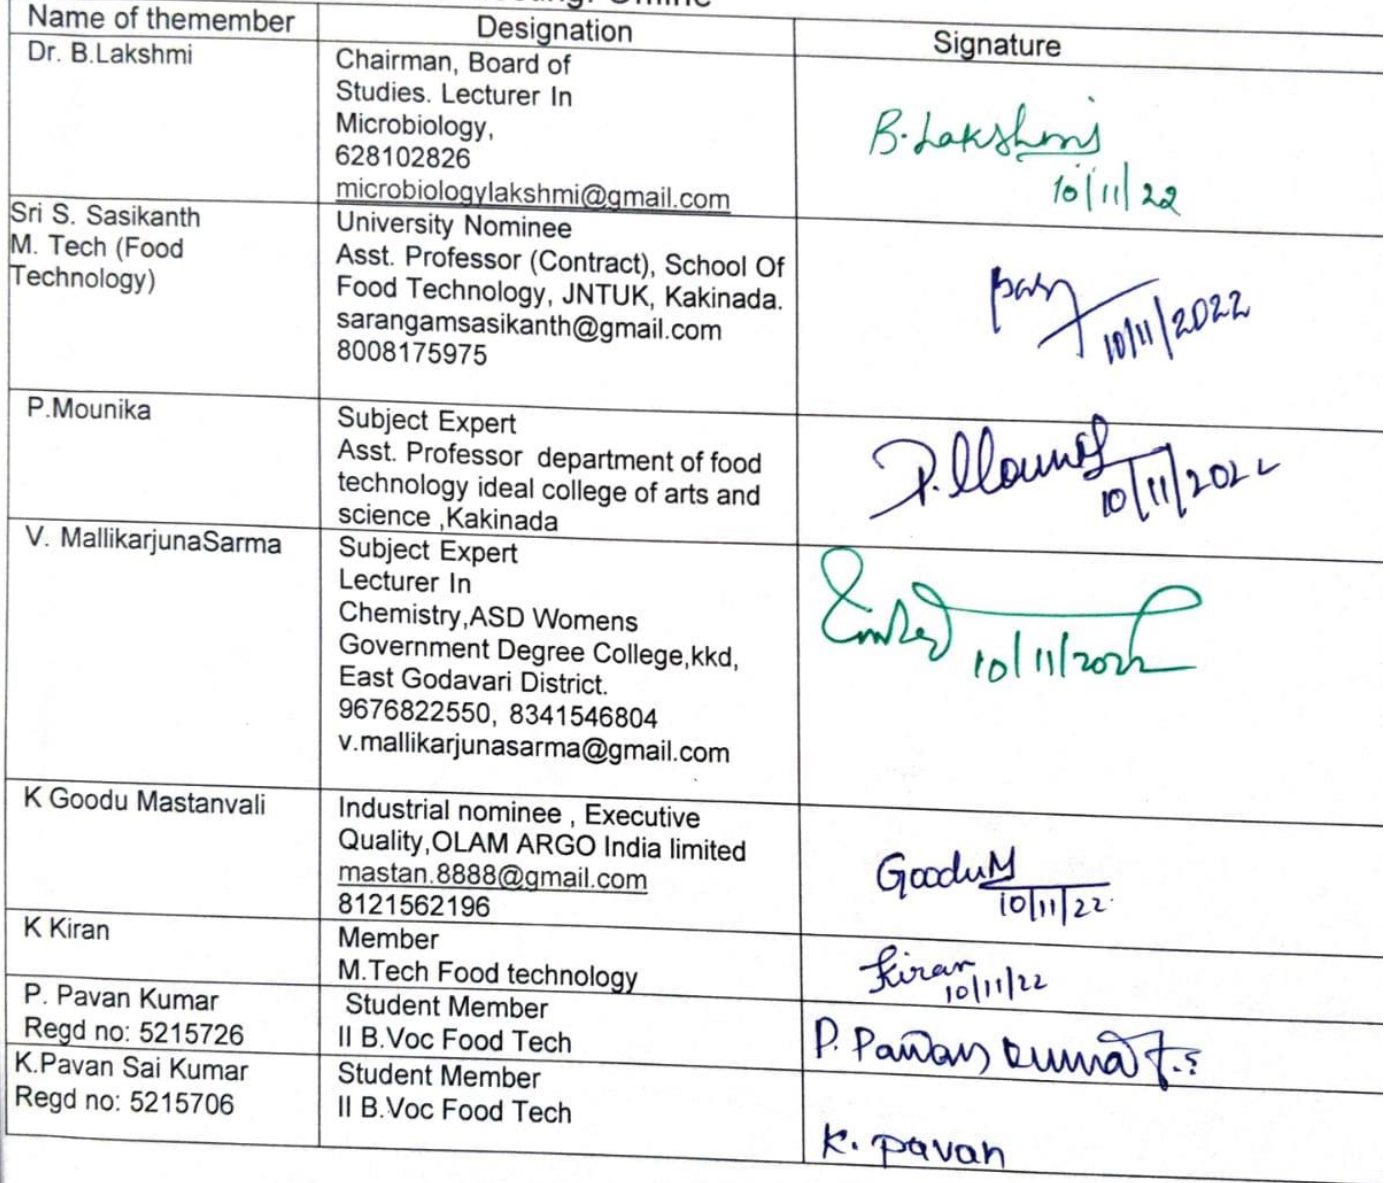 Online
Name of themember
Designation
Signature
Dr. B.Lakshmi
Chairman, Board of
Studies. Lecturer In
Microbiology,
628102826
microbiologylakshmi@gmail.com
B.Lakshmi
10/11/22
Sri S. Sasikanth
M. Tech (Food
Technology)
University Nominee
Asst. Professor (Contract), School Of
Food Technology, JNTUK, Kakinada.
sarangamsasikanth@gmail.com
8008175975
10/11/2022
P.Mounika
Subject Expert
Asst. Professor department of food
technology ideal college of arts and
science ,Kakinada
10/11/2022
V. MallikarjunaSarma
Subject Expert
Lecturer In
Chemistry,ASD Womens
Government Degree College,kkd,
East Godavari District.
9676822550, 8341546804
v.mallikarjunasarma@gmail.com
10/11/2022
K Goodu Mastanvali
Industrial nominee , Executive
Quality,OLAM ARGO India limited
mastan.8888@gmail.com
8121562196
GooduM
10/11/22
K Kiran
Member
M.Tech Food technology
Kiran
10/11/22
P. Pavan Kumar
Regd no: 5215726
Student Member
II B.Voc Food Tech
P. Pawan Kumar
K.Pavan Sai Kumar
Regd no: 5215706
Student Member
II B.Voc Food Tech
K. Pavan